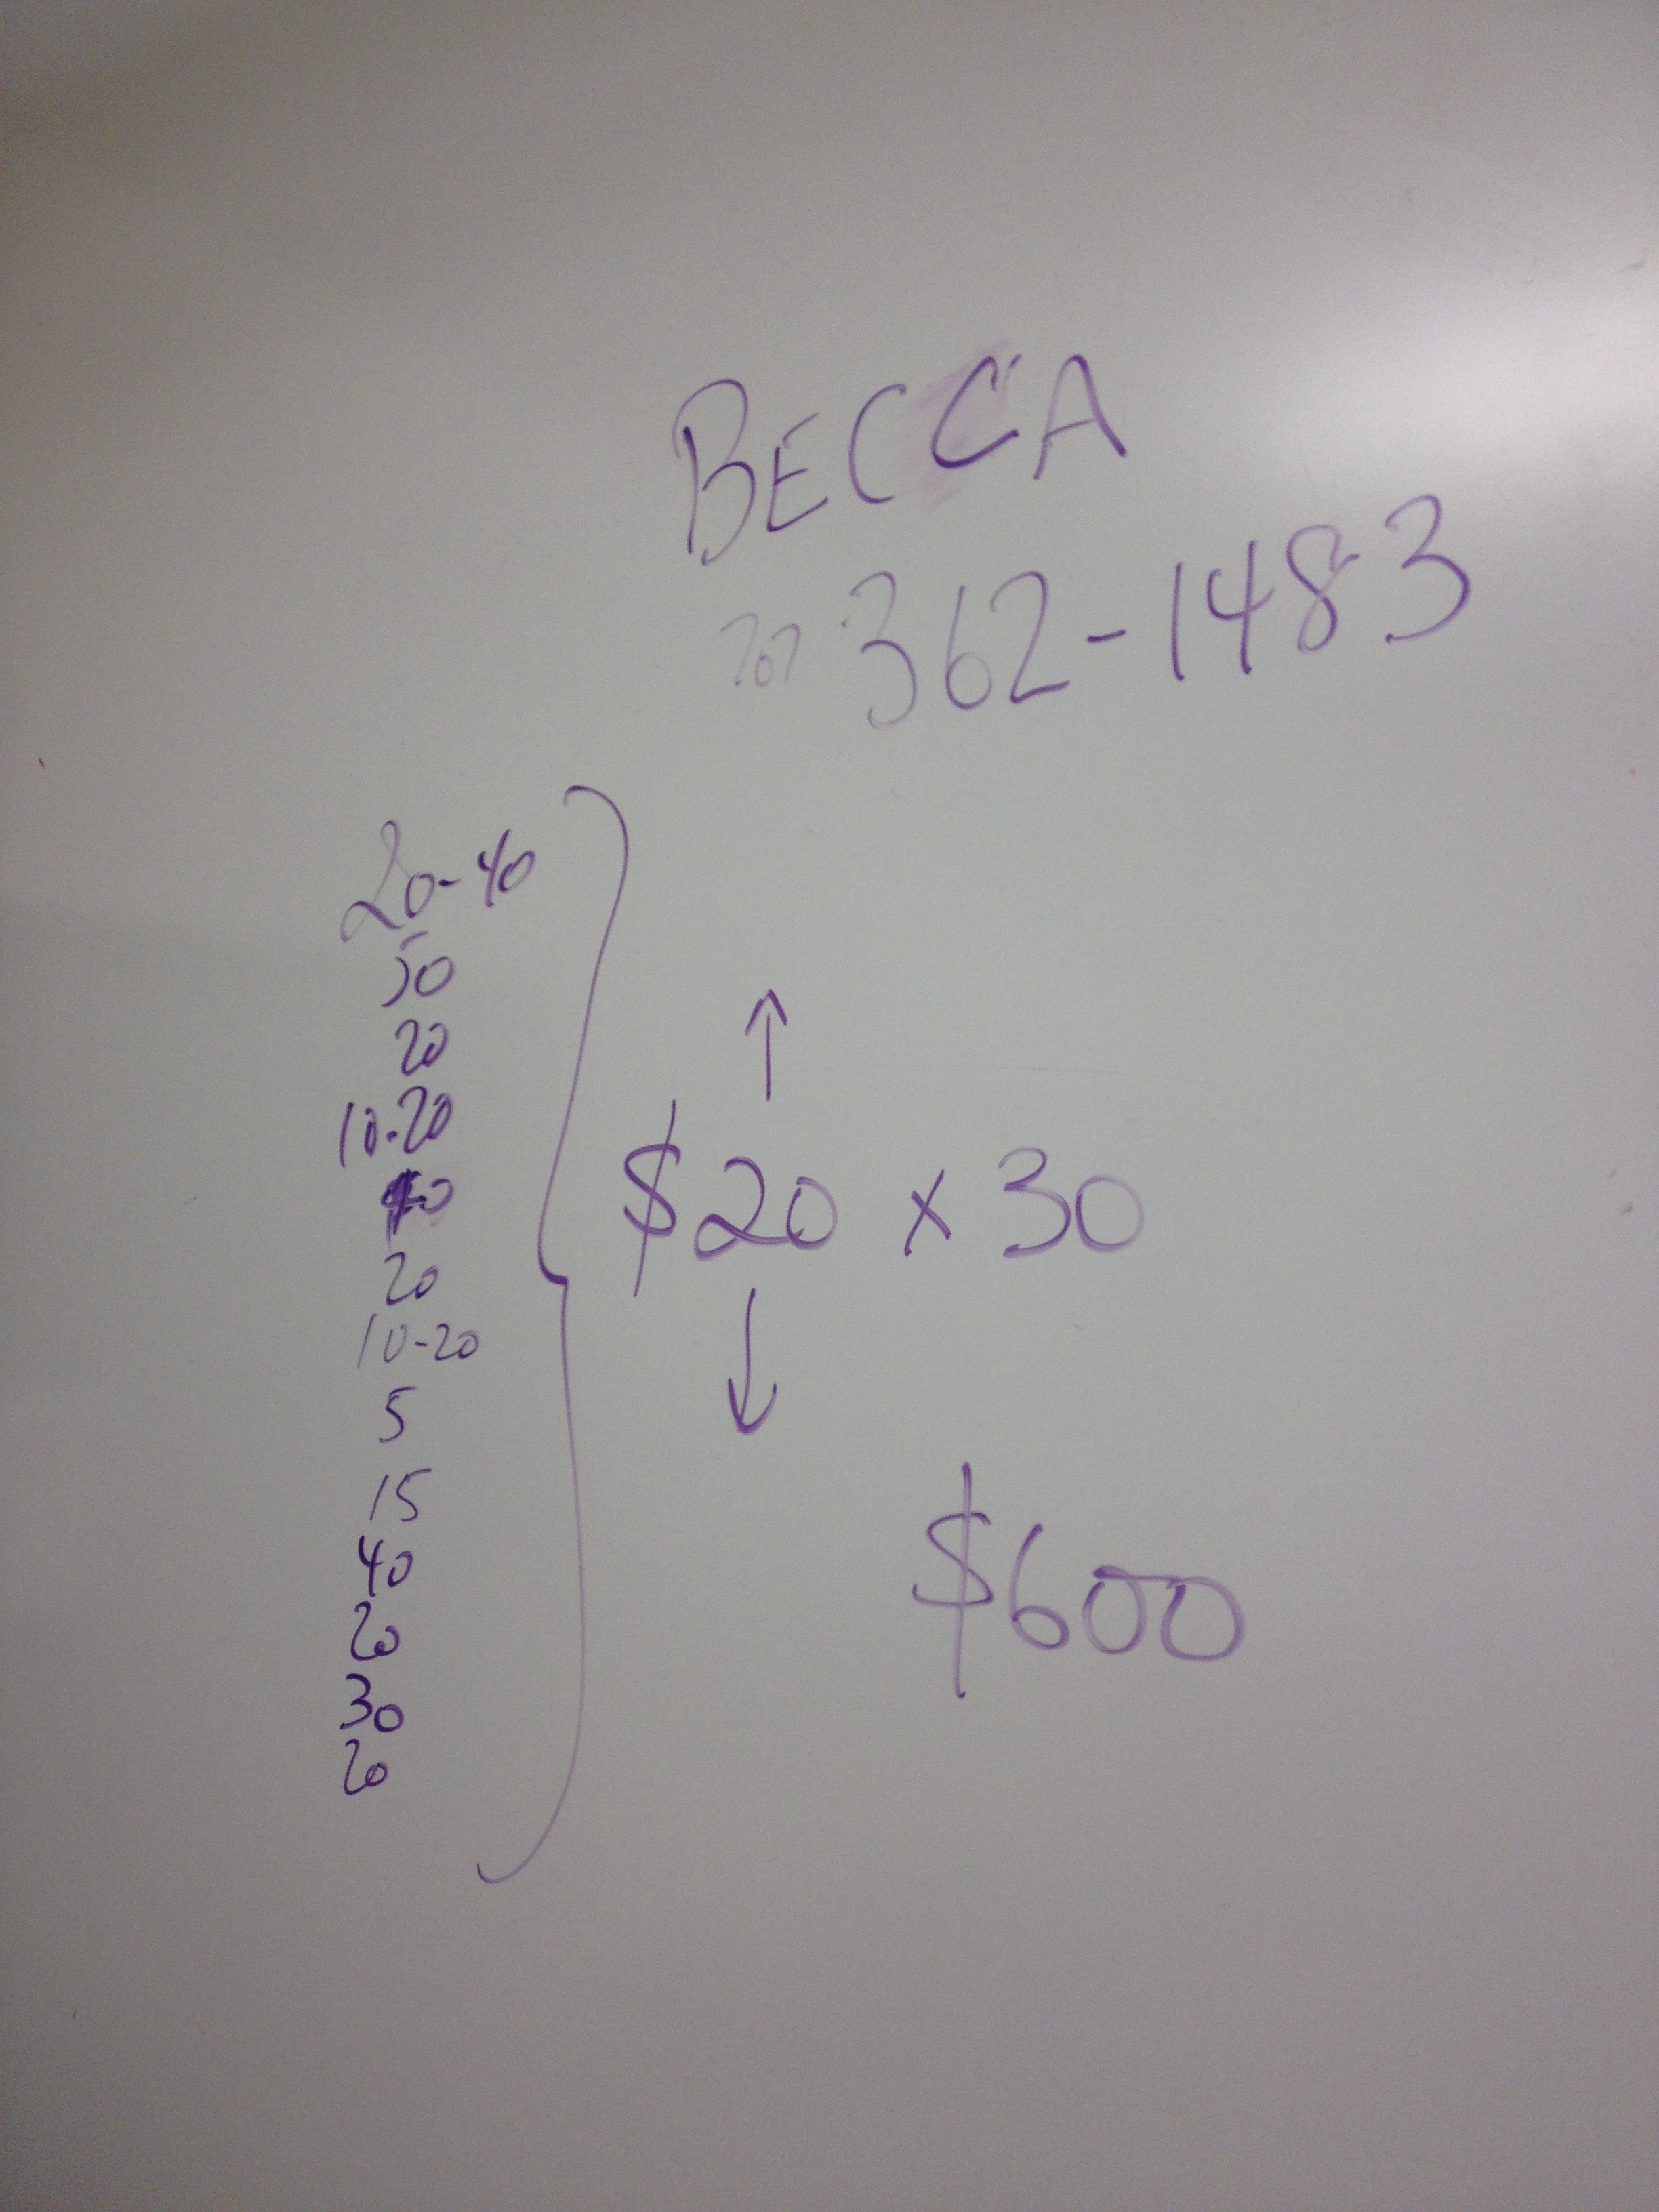 BECCA
707 362-1483
20-40
50
20
10-20
20
10-20
5
15
40
20
30
20
$20 x 30
$600